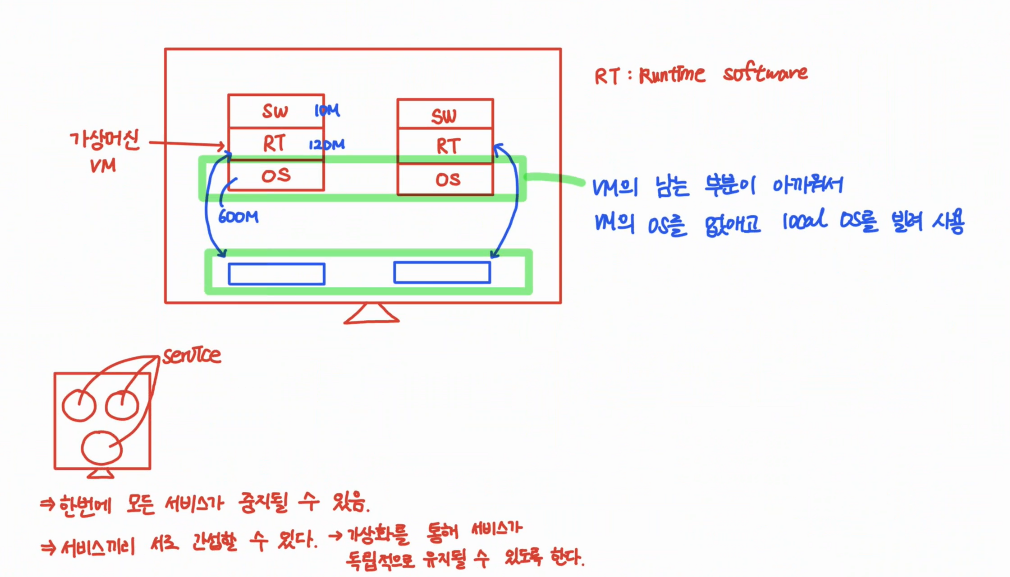 RT : Runtime software
SW 10M
SW
가상머신
VM
RT 120M
RT
OS
OS
600M
VM의 남는 부분이 아까워서
VM의 OS를 없애고 local OS를 빌려 사용
service
⇒ 한번에 모든 서비스가 중지될 수 있음.
⇒ 서비스끼리 서로 간섭할 수 있다. → 가상화를 통해 서비스가
독립적으로 유지될 수 있도록 한다.